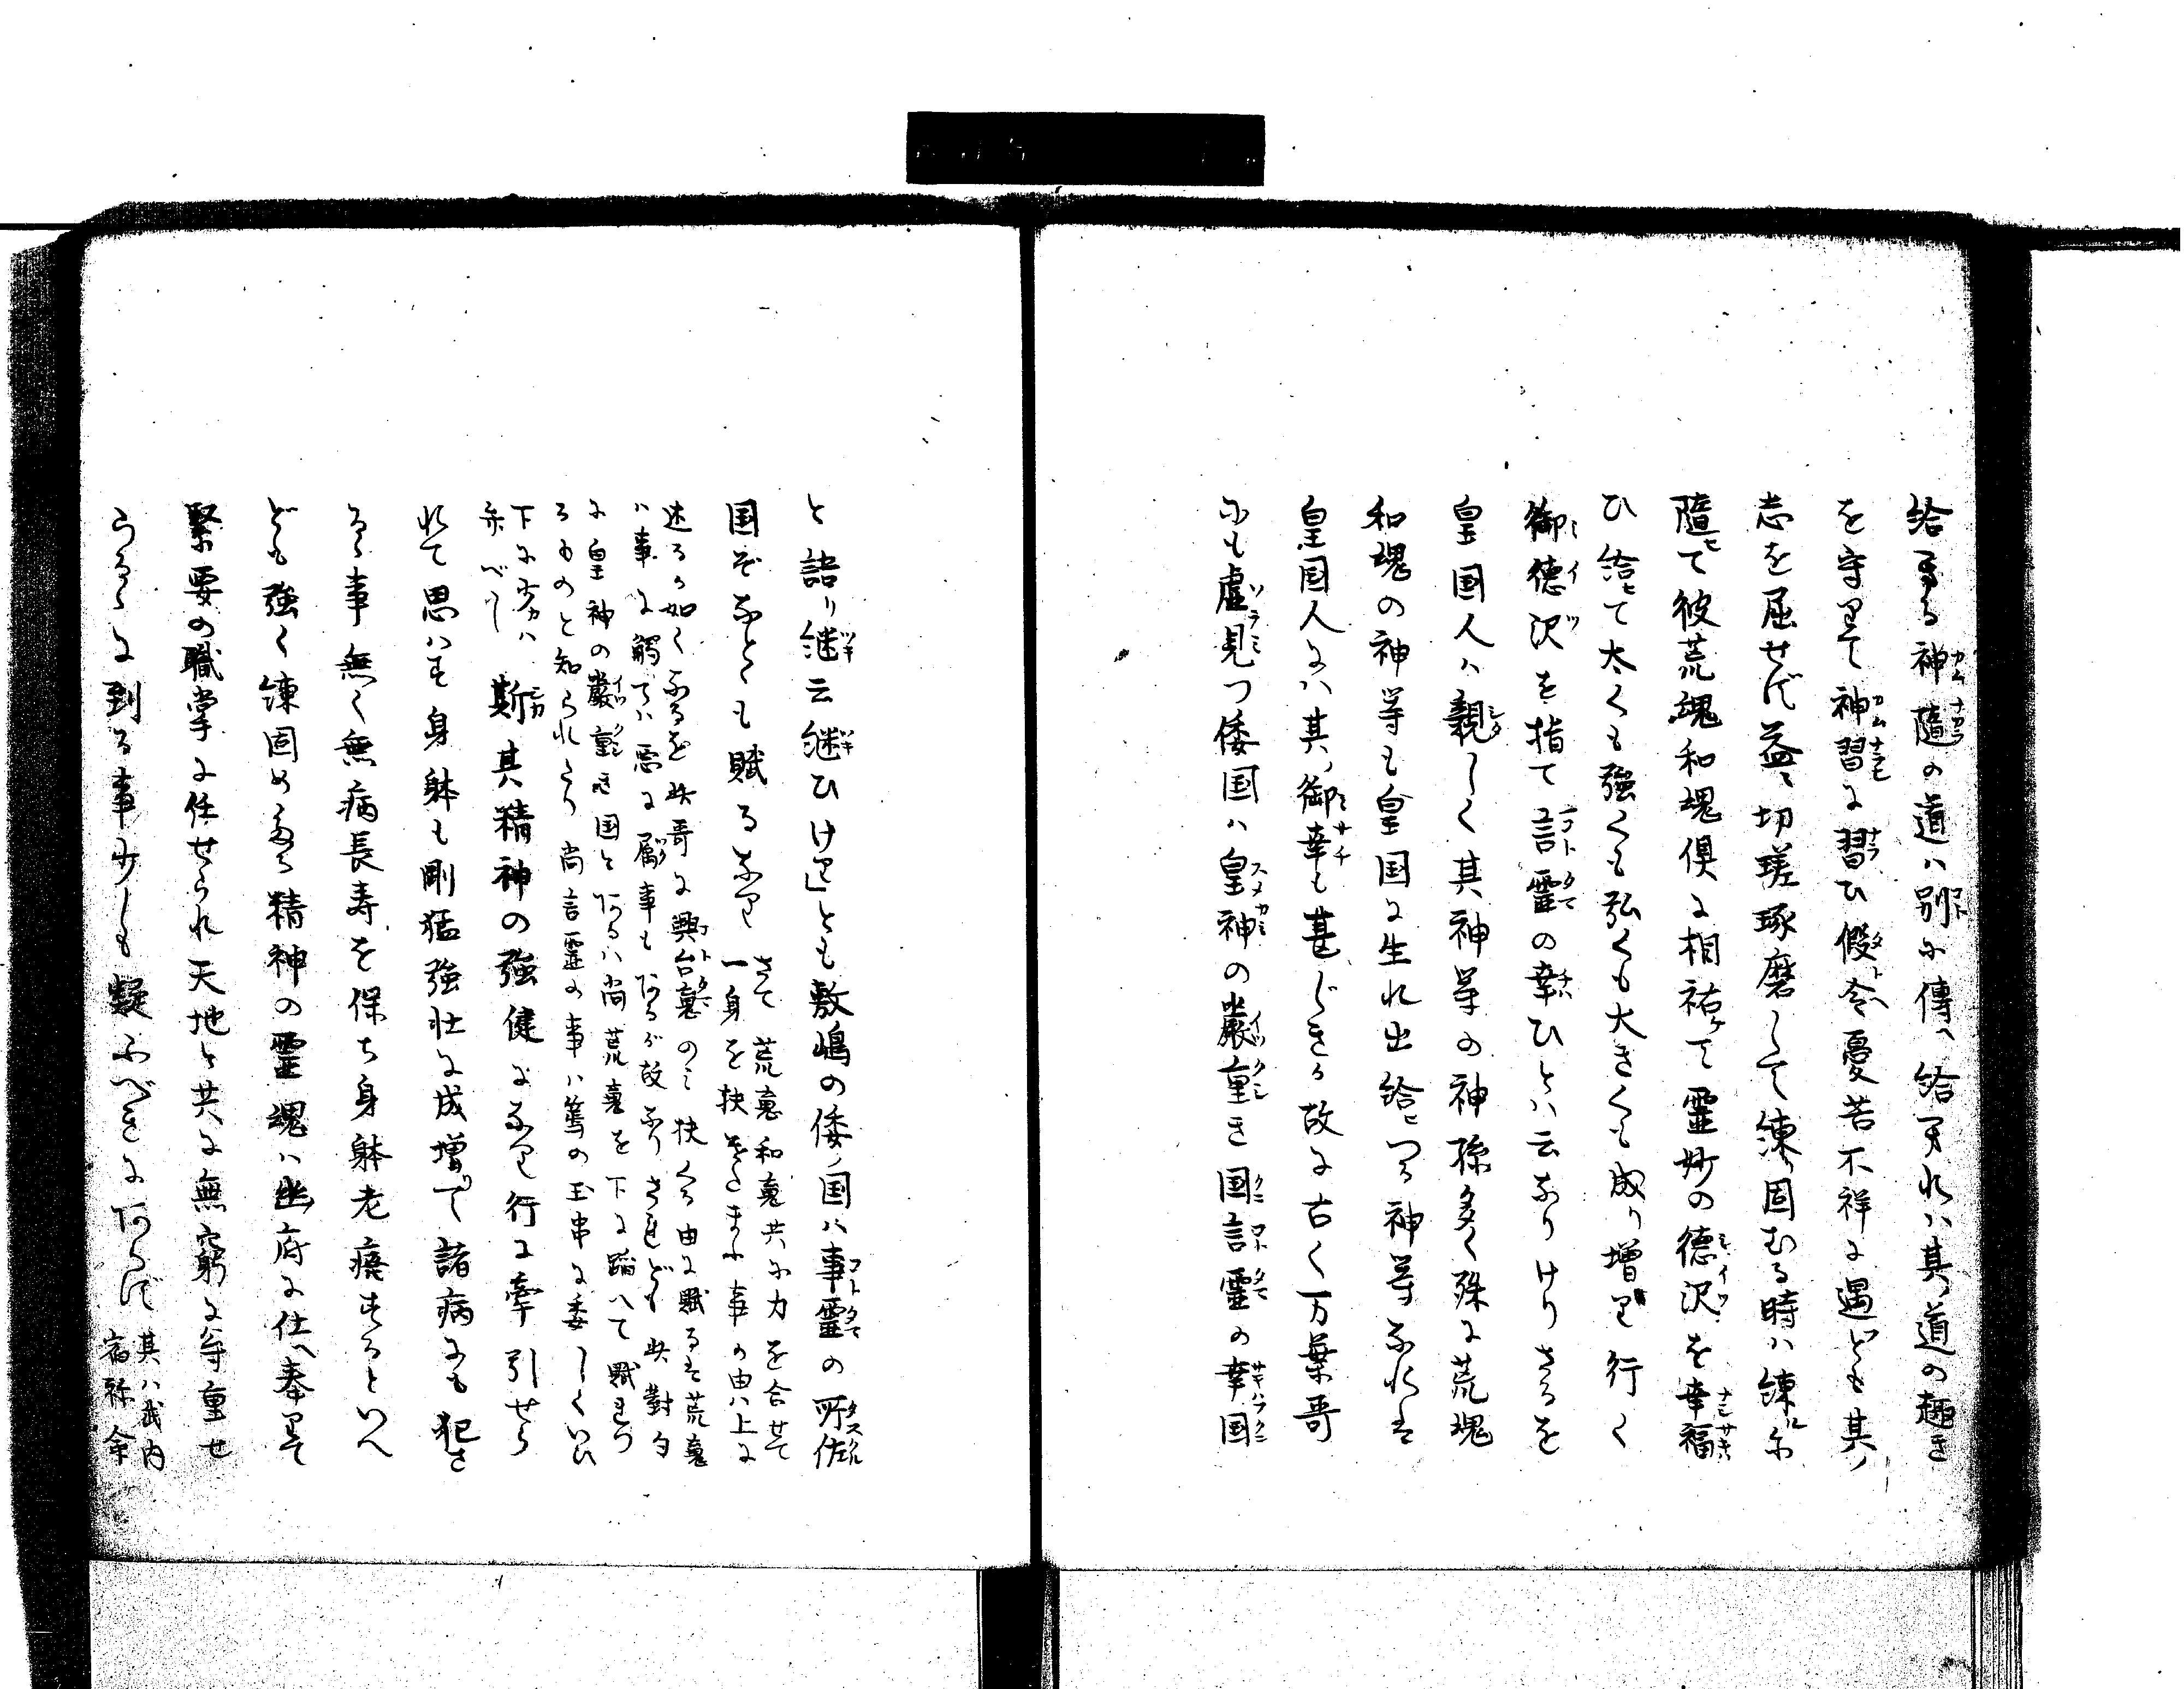 給する神随の道ハ別に傳へ給ヘれハ其道の趣き
を守りて神習に習ひ假令憂苦不祥に遇ども其ノ
志を屈せず益々切瑳琢磨して練り固むる時ハ練ルに
隨ヒて彼荒魂和魂倶に相祐ケて靈妙の徳沢を幸福
ひ給ヒて太くも強くも弘くも大きくも成り増り行く
御徳沢を指て言靈の幸ひとハ云なりけりさるを
皇国人ハ親しく其神等の神孫多く殊に荒魂
和魂の神等も皇国に生れ出給ヒつる神等なれは
皇国人にハ其ノ御幸も甚じきが故に古く万葉哥
にも虚見つ倭国ハ皇神の嚴重き国言靈の幸国
と語り継云継ひけり」とも敷嶋の倭ノ国ハ事靈の所佐
国ぞなとも賦るなり さて荒魂和魂共に力を合せて
一身を扶 事の由ハ上に
述るが如くなるを此哥に興台魂のミ扶くる由に賦るは荒魂
ハ事に觸てハ悪に属事も有るが故なりされども此對句
に皇神の嚴重き国と有るハ尚荒魂を下に踏へて賦れ
るものと知られたり尚言靈の事ハ篤の玉串に委しくいひ
下にも ハ
弁べし 斯其精神の強健になり行に牽引せら
れて思ハず身躰も剛猛強壮に成増りて諸病にも犯さ
るゝ事無く無病長寿を保ち身躰老癈するといへ
ども強く練固めたる精神の靈魂ハ幽府に仕へ奉りて
緊要の職掌に任せられ天地と共に無窮に尊重せ
らるゝに到る事少しも疑ふべきに有らず 其ハ武内
宿祢命